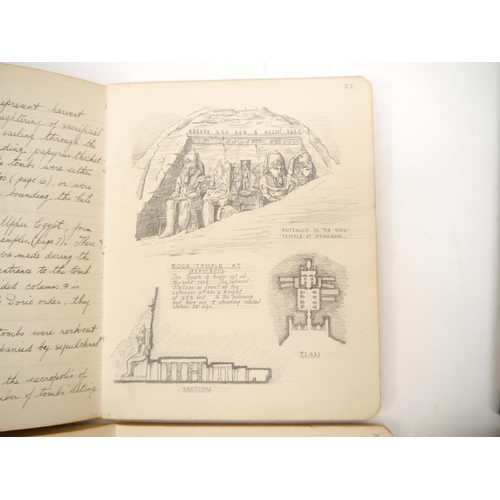 epresent harvest
ghtering of sacrificial
sailing through the
papyrus thicket
tombs were either
(page 6), or were
bounding the hills
Upper Egypt, form
(page 7). These
were made during the
entrance to the tomb
column & is
Doric order, they
tombs were rock-cut
by sepulchral
the necropolis of
number of tombs dating
22.
ENTRANCE TO THE ROCK-
TEMPLE AT IPSAMBOUL.
ROCK TEMPLE AT
IPSAMBOUL
This Temple is hewn out of
the solid rock. The Colossal
Statues in front of the
entrance attain a height
of feet. In the
hall there are 8 standing colossal
statues high.
PLAN
SECTION